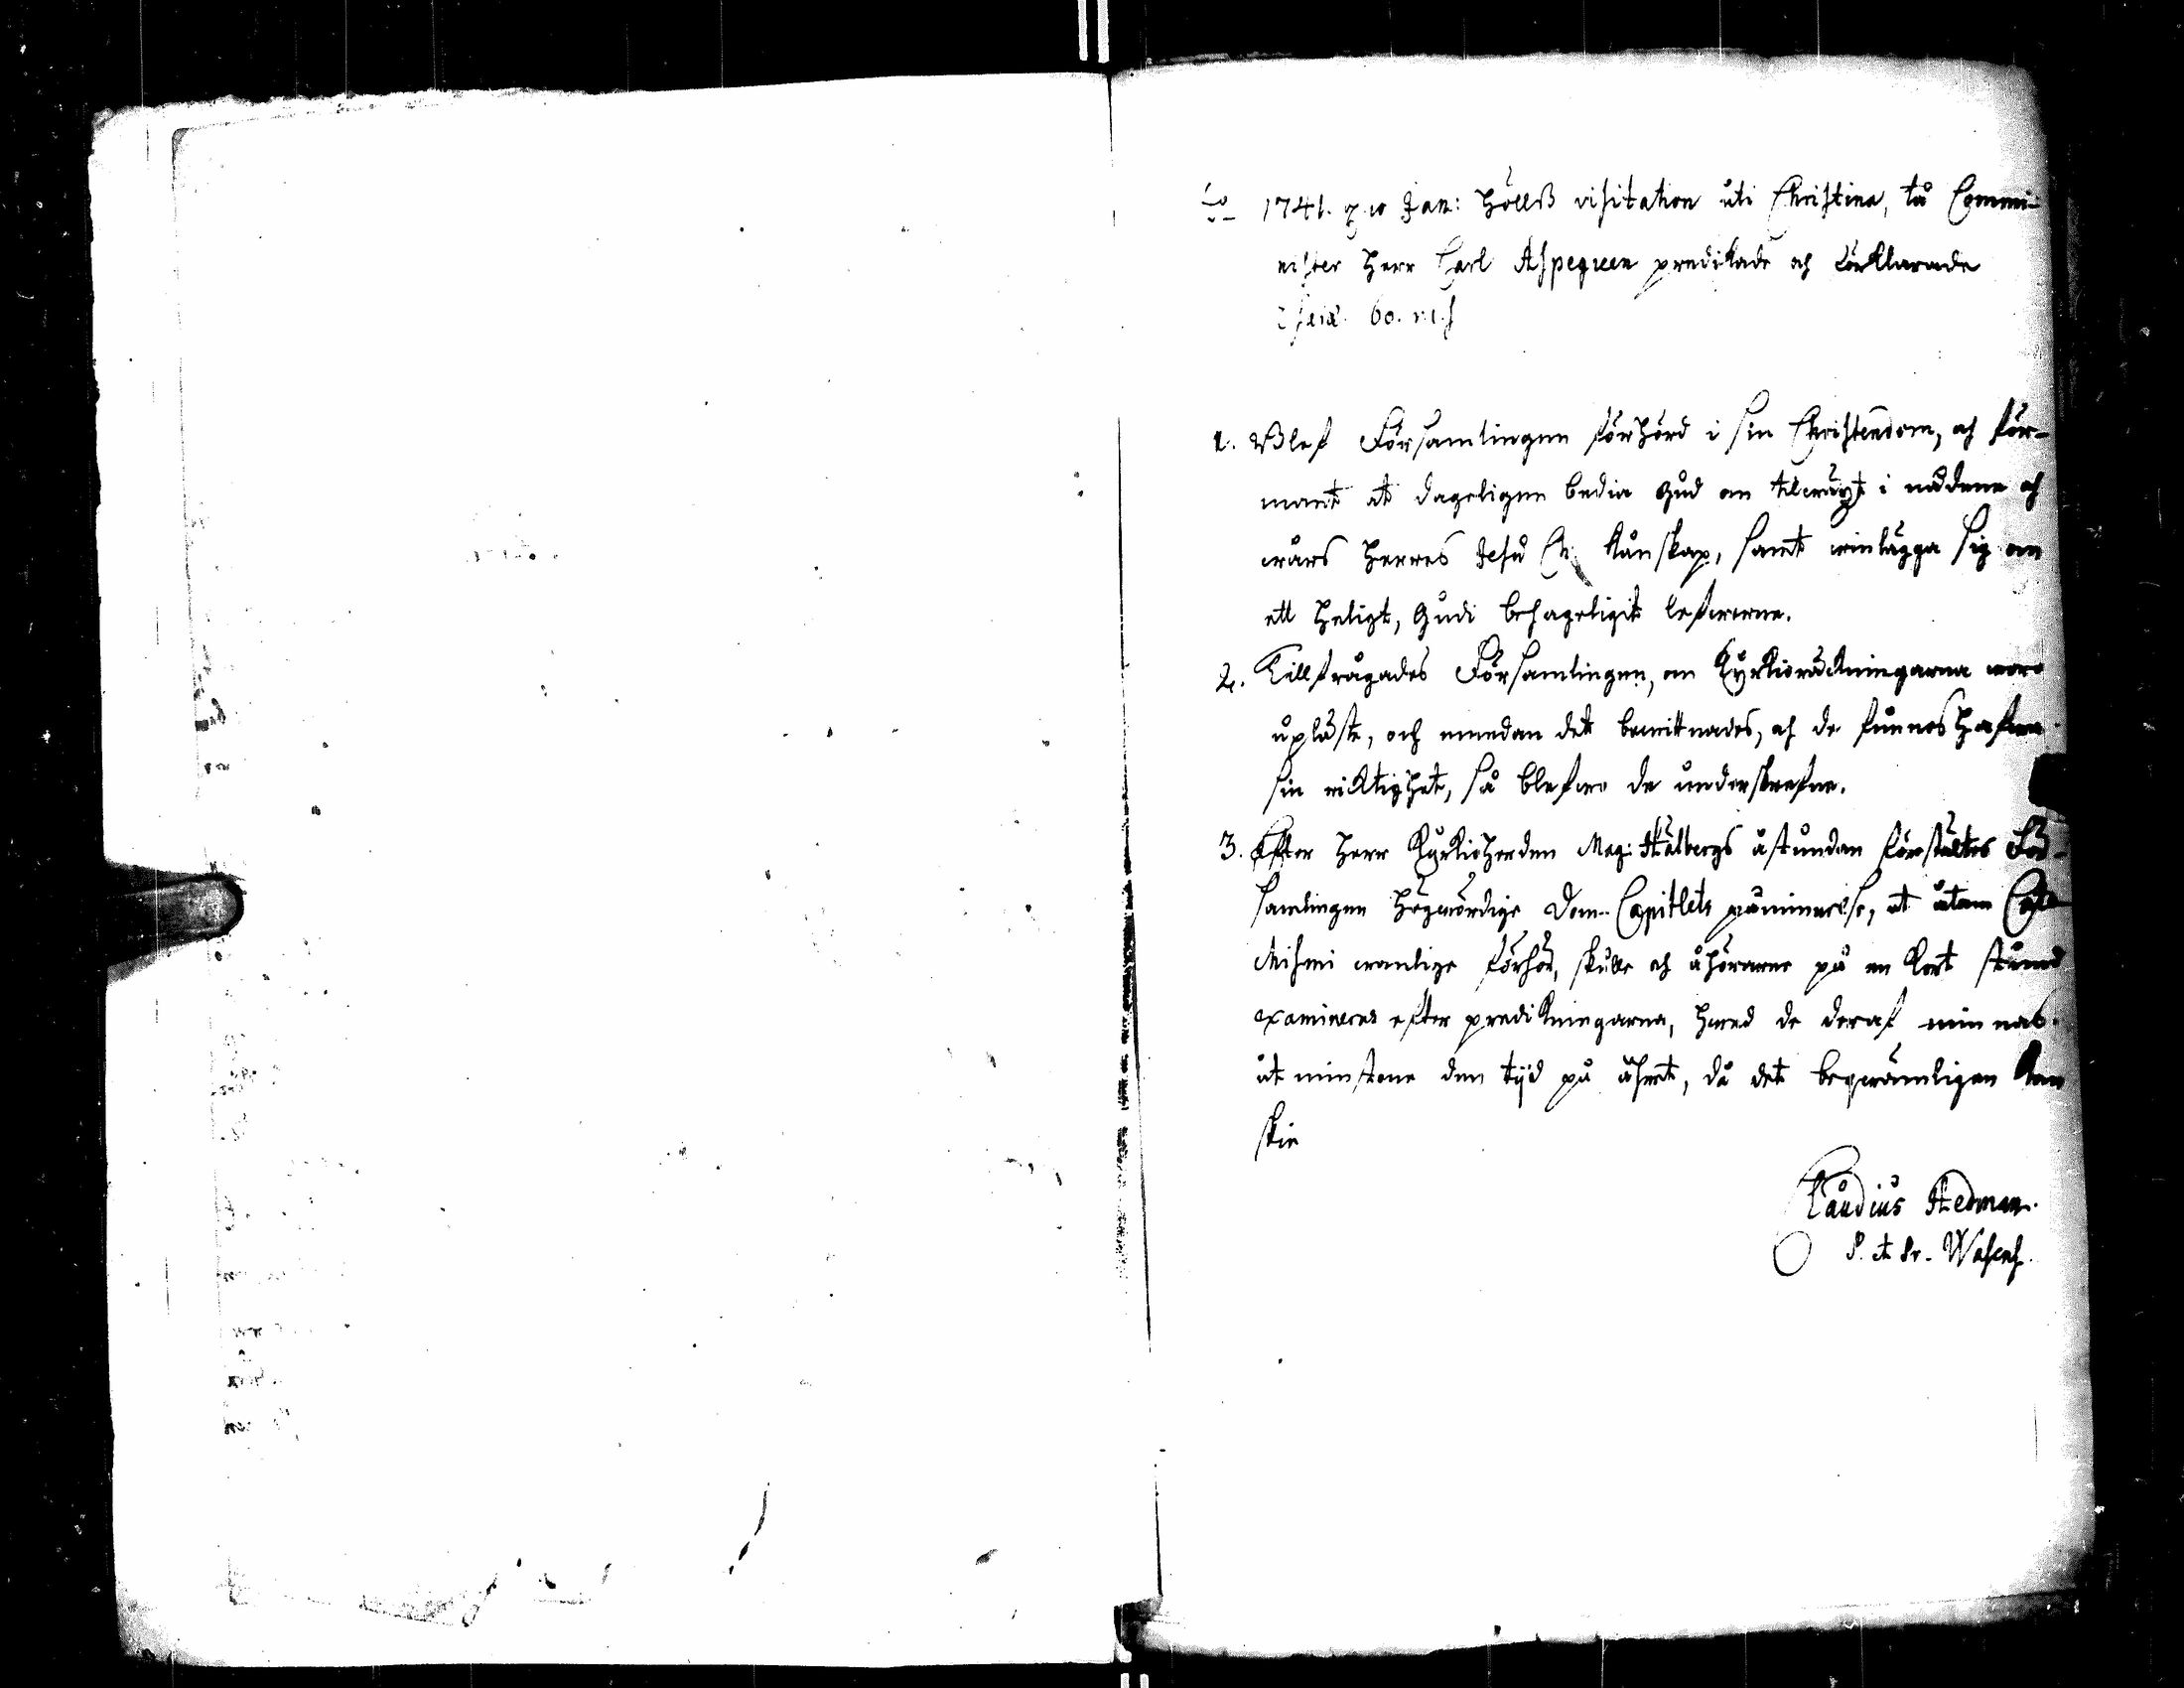 1741. d. 10 Jan: hölls visitation uti Christina, tå Commi-
nister Herr Carl Aspegreen predikade och förklarade
60.
1. Blef Församlingen förhörd i sin Christendom, och för-
mant at dageligen bedia Gud om tilwäxt i nådene och
wårs Herres Jesu Ch. kunskap, samt winlägga sig om
ett heligt, Gudi behageligit lefwerne.
2. Tillfrågades Församlingen, om Kyrkioräkningarna woro
upläste, och emedan det bewittnades, och de funnos hafwa
sin riktighet, så blefwo de underskrefne.
3. Efter Herr Kyrkioherden Mag: Stålbergs åstundan förestältes För-
samlingen högwördige Dom-Capitlets påminnelse, at utom Cate-
chismi wanlige förhör, skulle och åhörarne på en kort stund
examineras efter predikningarna, hwad de deraf minnas.
åt minstone den tijd på åhret, då det beqwämligen kan
skie
Claudius Hedman.
P. et Pr. Wasens.